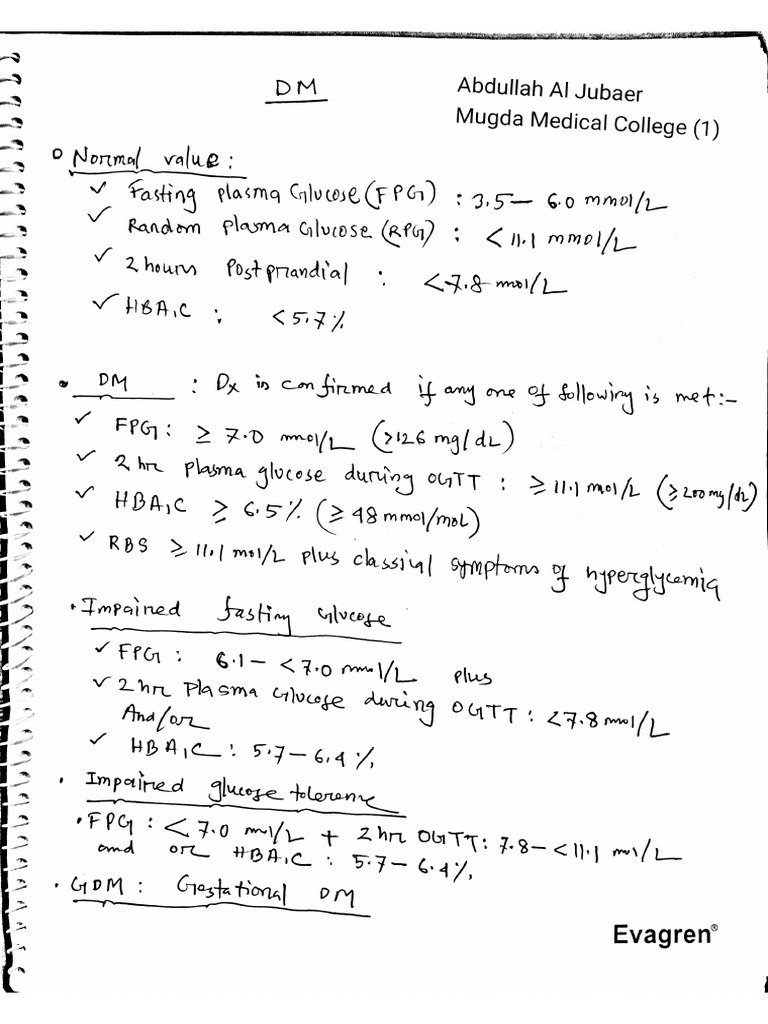 DM
Abdullah Al Jubaer
Mugda Medical College (1)
Normal value:
✓ Fasting plasma Glucose (FPG) : 3.5 – 6.0 mmol/L
✓ Random plasma Glucose (RPG) : < 11.1 mmol/L
✓ 2 hours Postprandial : < 7.8 mol/L
✓ HBA1C : < 5.7%
• DM : Dx is confirmed if any one of following is met:-
✓ FPG: ≥ 7.0 mmol/L (≥126 mg/dL)
✓ 2 hr plasma glucose during OGTT : ≥ 11.1 mol/L (≥ 200 mg/dL)
✓ HBA1C ≥ 6.5% (≥ 48 mmol/mol)
✓ RBS ≥ 11.1 mol/L plus classical symptoms of hyperglycemia
• Impaired fasting Glucose
✓ FPG: 6.1 – < 7.0 mmol/L plus
✓ 2 hr Plasma Glucose during OGTT : < 7.8 mol/L
And/or
✓ HBA1C : 5.7 – 6.4 %
• Impaired glucose tolerence
• FPG : < 7.0 mol/L + 2 hr OGTT: 7.8 – < 11.1 mol/L
and or HBA1C : 5.7 – 6.4%
• GDM : Gestational DM
Evagren®